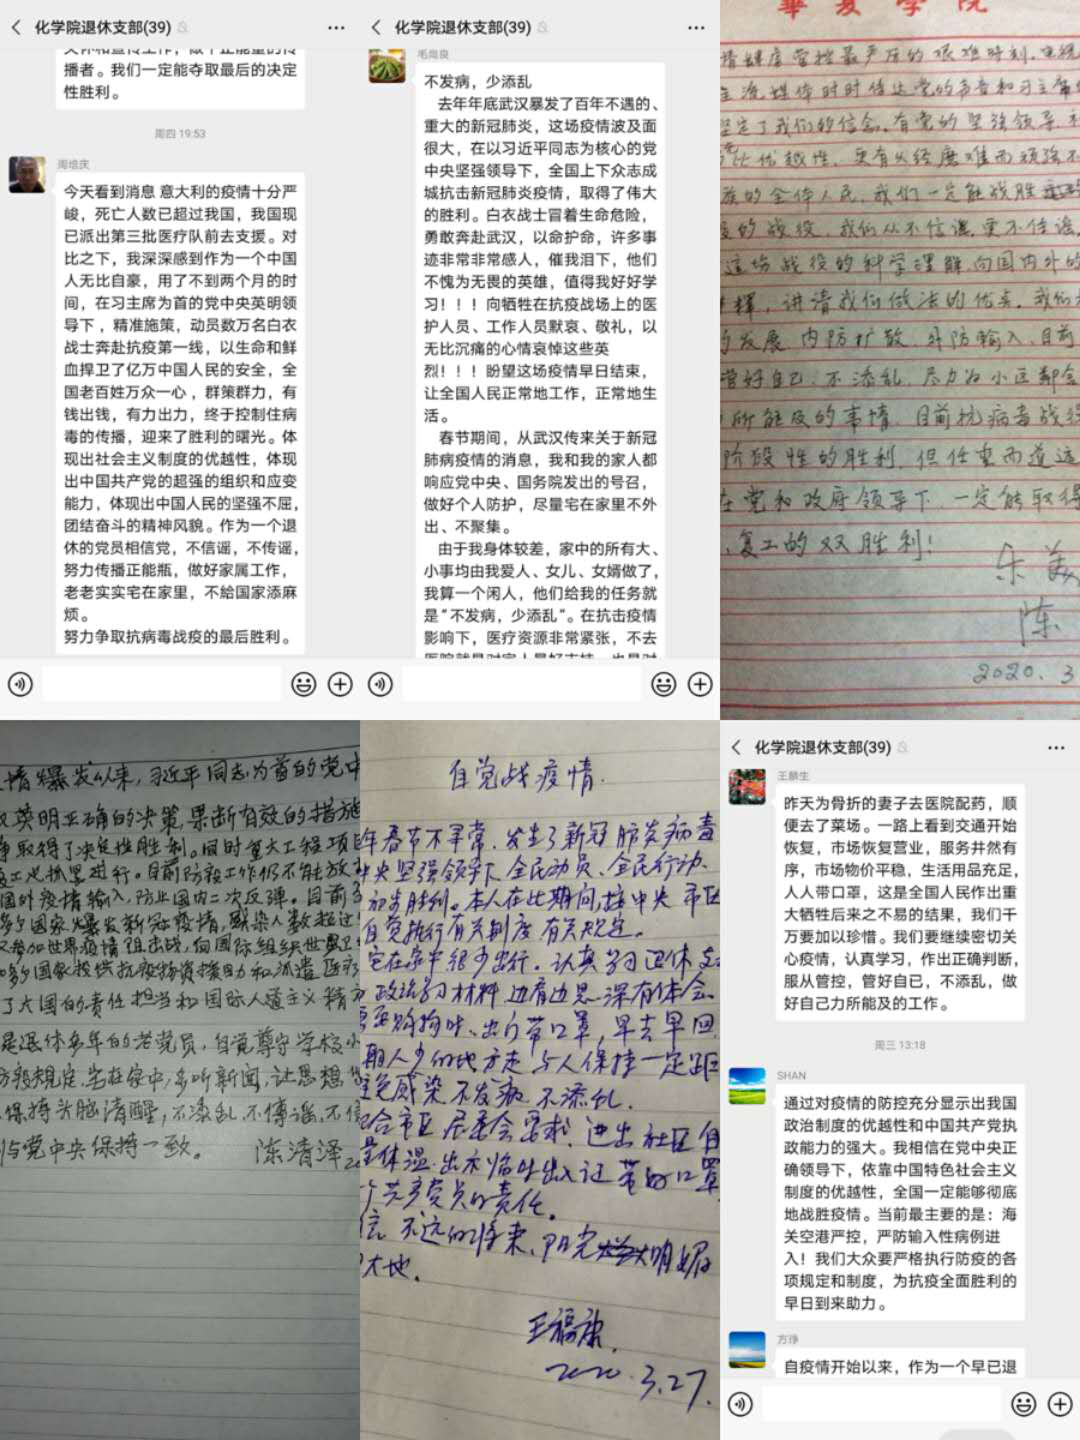 化学院退休支部(39)
播者。我们一定能夺取最后的决定
性胜利。
周四 19:53
周培庆
今天看到消息 意大利的疫情十分严
峻，死亡人数已超过我国，我国现
已派出第三批医疗队前去支援。对
比之下，我深深感到作为一个中国
人无比自豪，用了不到两个月的时
间，在习主席为首的党中央英明领
导下，精准施策，动员数万名白衣
战士奔赴抗疫第一线，以生命和鲜
血捍卫了亿万中国人民的安全，全
国老百姓万众一心，群策群力，有
钱出钱，有力出力，终于控制住病
毒的传播，迎来了胜利的曙光。体
现出社会主义制度的优越性，体现
出中国共产党的超强的组织和应变
能力，体现出中国人民的坚强不屈，
团结奋斗的精神风貌。作为一个退
休的党员相信党，不信谣，不传谣，
努力传播正能瓶，做好家属工作，
老老实实宅在家里，不給国家添麻
烦。
努力争取抗病毒战疫的最后胜利。
化学院退休支部(39)
毛尚良
不发病，少添乱
去年年底武汉暴发了百年不遇的、
重大的新冠肺炎，这场疫情波及面
很大，在以习近平同志为核心的党
中央坚强领导下，全国上下众志成
城抗击新冠肺炎疫情，取得了伟大
的胜利。白衣战士冒着生命危险，
勇敢奔赴武汉，以命护命，许多事
迹非常非常感人，催我泪下，他们
不愧为无畏的英雄，值得我好好学
习！！！向牺牲在抗疫战场上的医
护人员、工作人员默哀、敬礼，以
无比沉痛的心情哀悼这些英
烈！！！盼望这场疫情早日结束，
让全国人民正常地工作，正常地生
活。
春节期间，从武汉传来关于新冠
肺病疫情的消息，我和我的家人都
响应党中央、国务院发出的号召，
做好个人防护，尽量宅在家里不外
出、不聚集。
由于我身体较差，家中的所有大、
小事均由我爱人、女儿、女婿做了，
我算一个闲人，他们给我的任务就
是“不发病，少添乱”。在抗击疫情
影响下，医疗资源非常紧张，不去
情鲜度管控最严厉的艰难时刻，电视
主流媒体时时传达党的声音和习主席
坚定了我们的信念。有党的坚强领导，
优越性，更有久经磨难而顽强不
族的全体人民，我们一定能战胜
的战役，我们从不信谣，更不传谣，
这场战役的科学理解，向国内外的
讲清我们做法的优点。我们
发展，内防扩散，外防输入，目前
管好自己，不添乱，尽力为小区都会
所能及的事情，目前抗病毒战役
阶段性的胜利，但任重而道远
在党和政府领导下，一定能取得
复工的双胜利！
陈
2020.3
情爆发以来，习近平同志为首的党中
英明正确的决策，果断有效的措施
取得了决定性胜利。同时重大工程项目
复工也抓紧进行。目前防控工作仍不能放
国外疫情输入，防止国内二次反弹。目前
多国家爆发新冠疫情，感染人数超过
参加世界疫情阻击战，向国际组织世卫
多国家提供抗疫物资援助和派遣医疗
了大国的责任担当和国际人道主义精
是退休多年的老党员，自觉遵守学校小
规定，宅在家中，多听新闻，让思想
保持头脑清醒，不添乱，不传谣，不信
与党中央保持一致。 陈清泽
自觉战疫情.
年春节不寻常，发生了新冠肺炎病毒
中央坚强领导下，全民动员、全民行动、
初步胜利。本人在此期间，按中央 市区
自觉执行有关制度 有关规定。
宅在家中很少出行。认真学习退休支
政治学习材料，边看边思，深有体会
购物时、出门带口罩，早去早回
人少的地方走，与人保持一定距
避免感染，不发病，不添乱.
配合市区居委会要求，进出社区自
量体温，出示临时出入证，带好口罩
个共产党员的责任。
信，不远的将来，阳光明媚
大地.
王福康.
2020.3.27.
化学院退休支部(39)
王麟生
昨天为骨折的妻子去医院配药，顺
便去了菜场。一路上看到交通开始
恢复，市场恢复营业，服务井然有
序，市场物价平稳，生活用品充足，
人人带口罩，这是全国人民作出重
大牺牲后来之不易的结果，我们千
万要加以珍惜。我们要继续密切关
心疫情，认真学习，作出正确判断，
服从管控，管好自已，不添乱，做
好自己力所能及的工作。
周三 13:18
SHAN
通过对疫情的防控充分显示出我国
政治制度的优越性和中国共产党执
政能力的强大。我相信在党中央正
确领导下，依靠中国特色社会主义
制度的优越性，全国一定能够彻底
地战胜疫情。当前最主要的是：海
关空港严控，严防输入性病例进
入！我们大众要严格执行防疫的各
项规定和制度，为抗疫全面胜利的
早日到来助力。
方玶
自疫情开始以来，作为一个早已退